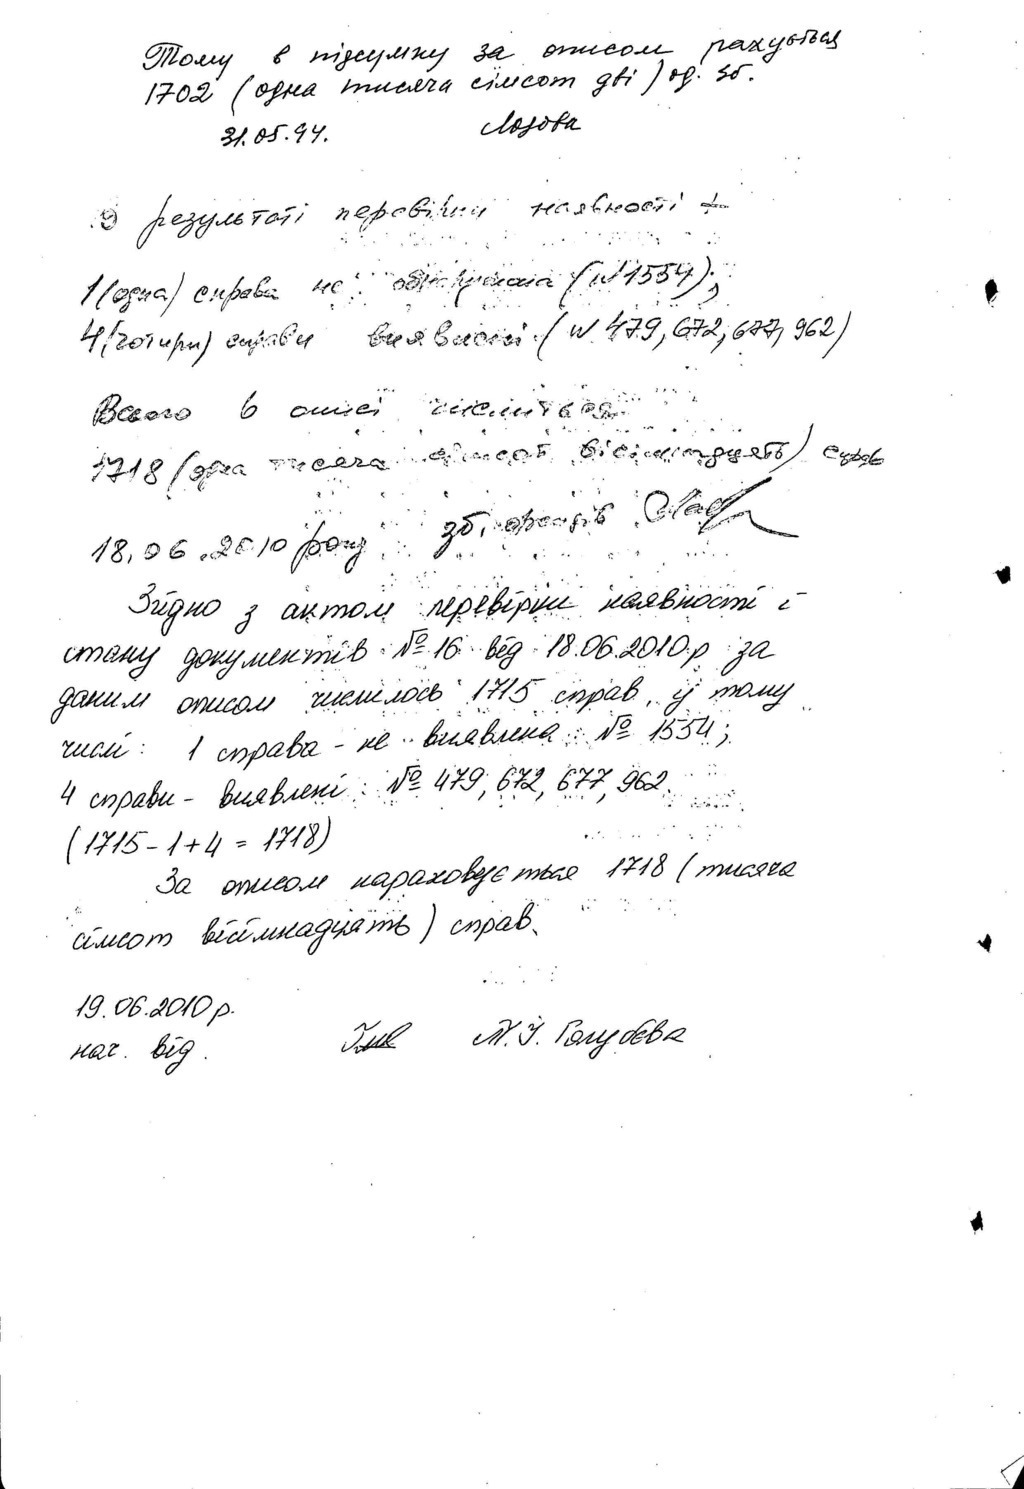 Тому в підсумку за описом рахується
1702 (одна тисяча сімсот дві) од. зб.
31.05.94. Лозова
В результаті перевірки наявності
1 (одна) справа не (№ 1554);
4 (чотири) справи виявлені (№ 479, 672, 677, 962)
Всього в описі числиться
1718 (одна тисяча сімсот вісімнадцять) справ
18.06.2010 року зб. фондів
Згідно з актом перевірки наявності і
стану документів № 16 від 18.06.2010 р за
даним описом числилось 1715 справ, у тому
числі: 1 справа - не виявлена: № 1554;
4 справи - виявлені: № 479, 672, 677, 962.
(1715 - 1 + 4 = 1718)
За описом нараховується 1718 (тисяча
сімсот вісімнадцять) справ.
19.06.2010 р.
нач. від. М.І. Голубєва